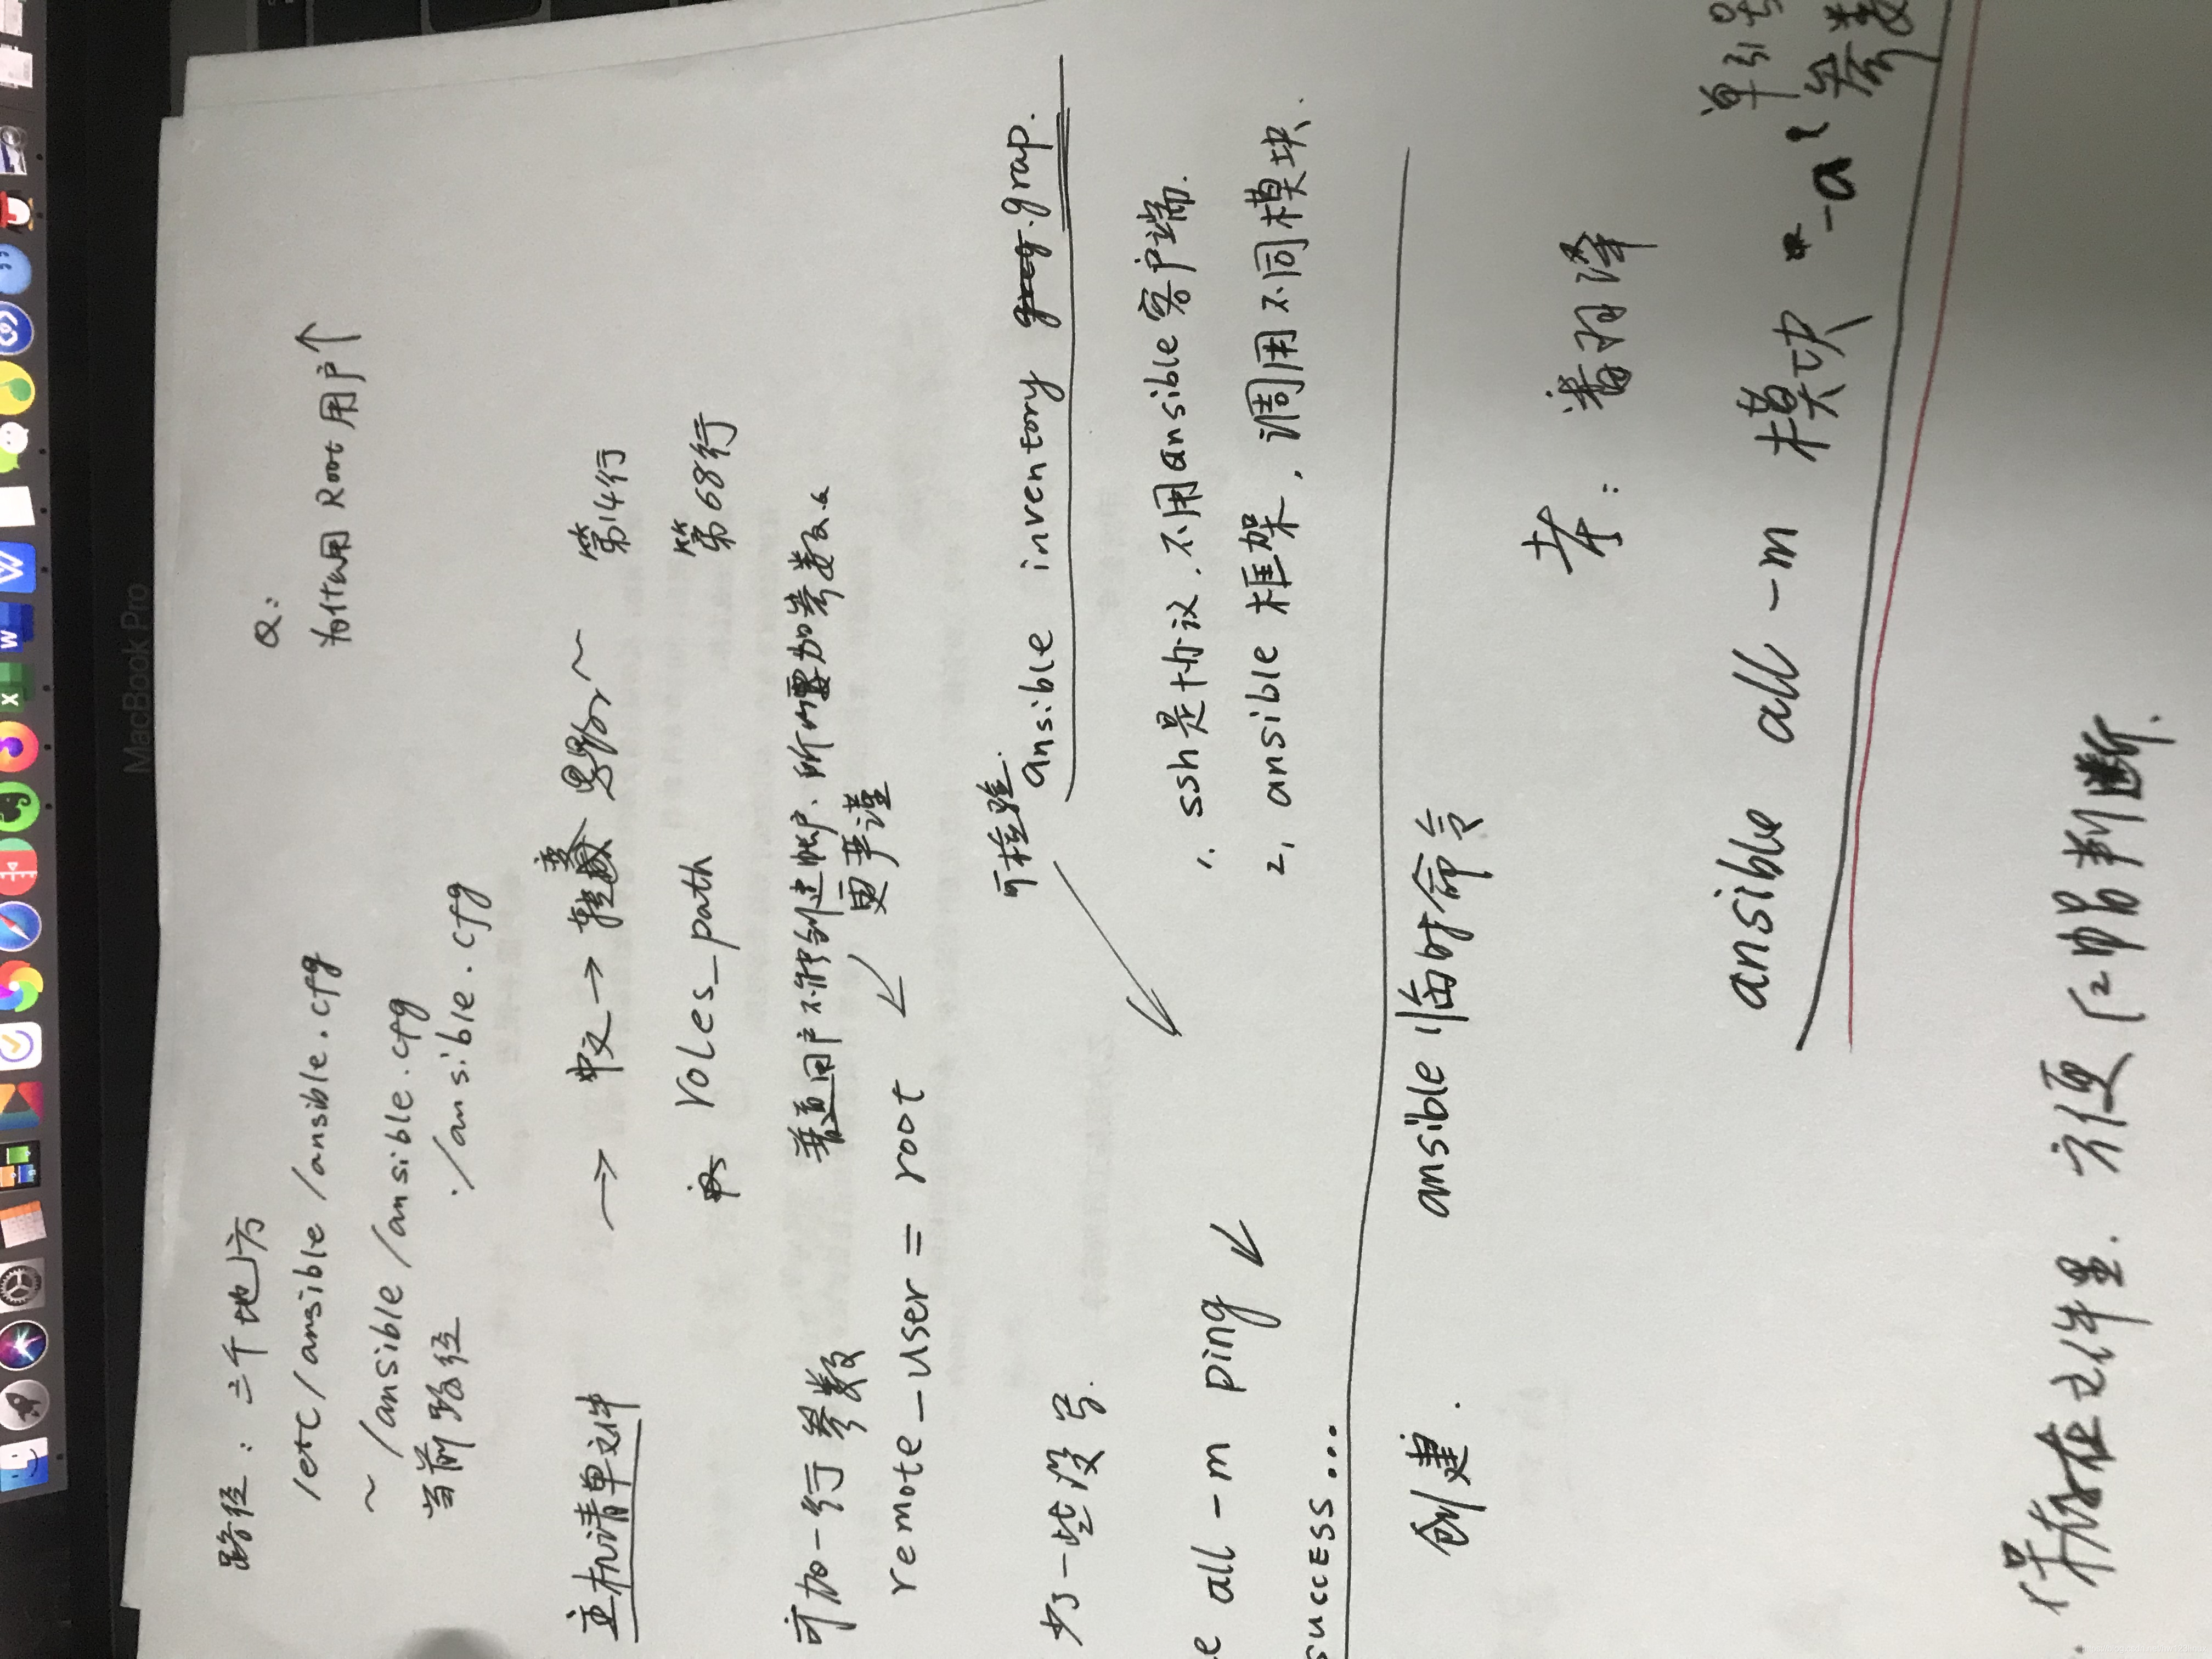 MacBook Pro
路径：三个地方
/etc/ansible/ansible.cfg
~/ansible/ansible.cfg
当前路径 ./ansible.cfg
Q:
用 Root 用户↑
主机清单文件 → 中文 → 第14行
roles_path 第68行
可加一行参数 普通用户不能创建帐户、所以需加参数
remote_user = root ↙ 更严谨
可检验
ansible inventory grap.
少一些没写.
1. ssh是协议.不用ansible客户端.
all -m ping ↙ 2, ansible 框架, 调用不同模块.
success...
创建. ansible 临时命令
考:
单引号
ansible all -m 模块 -a '参数
保存在文件里. 方便 帮判断.